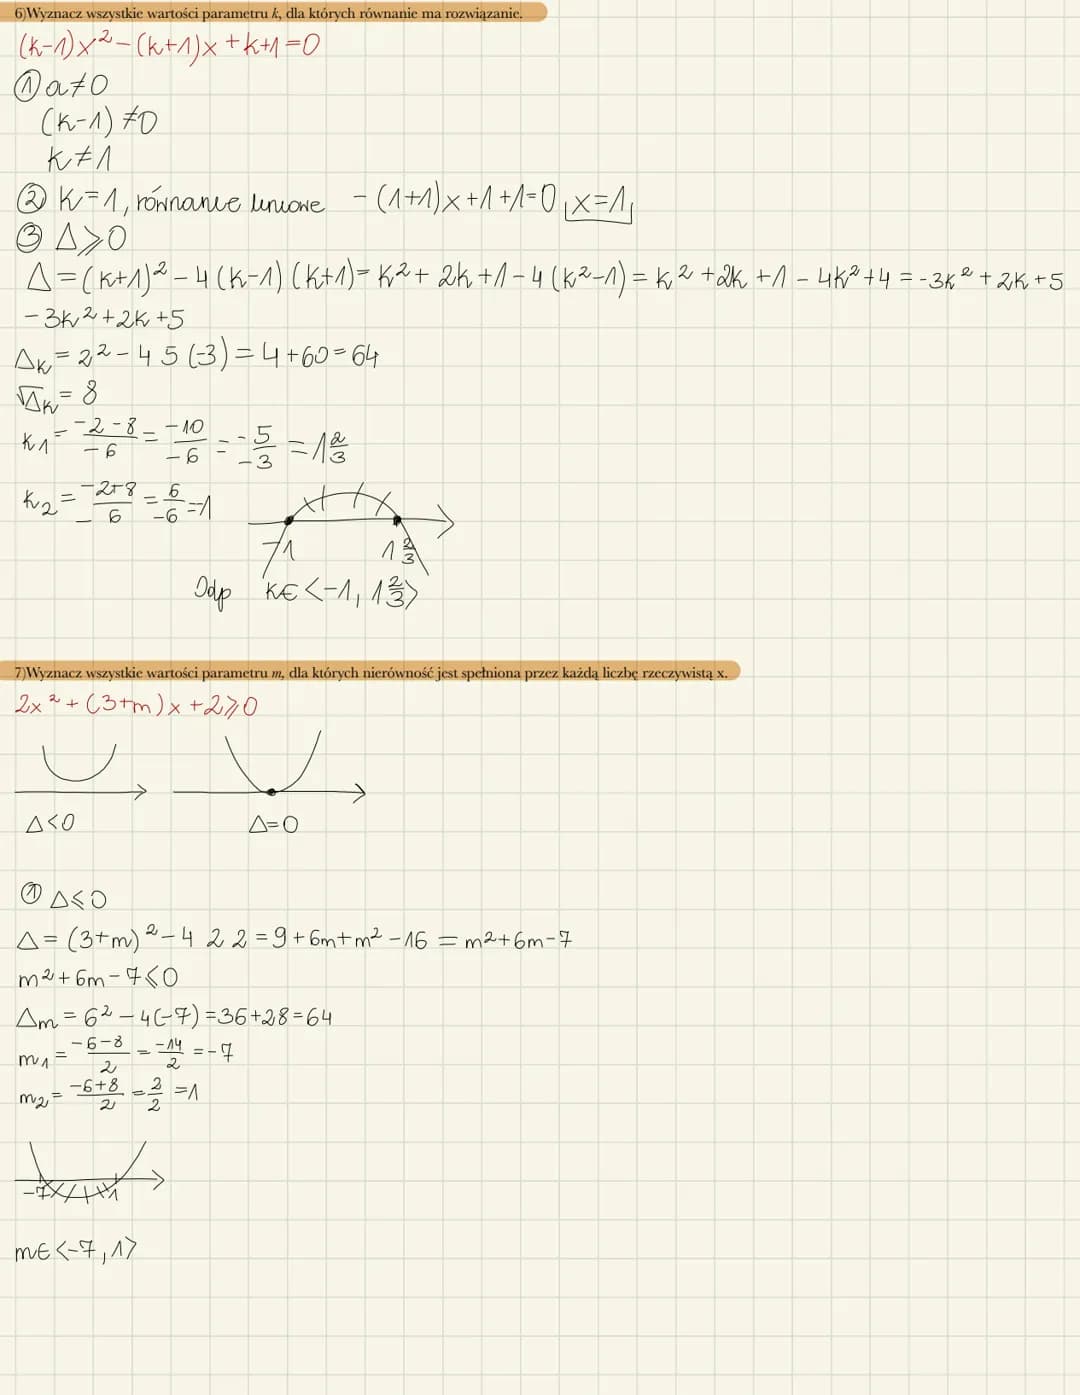 6)Wyznacz wszystkie wartości parametru k, dla których równanie ma rozwiązanie.
(k-1)x² - (k+1)x + k+1 = 0
① a≠0
(k-1) ≠0
k≠1
② k=1, równanie liniowe - (1+1)x +1 +1=0 x=1
③ Δ⩾0
Δ = (k+1)² - 4 (k-1) (k+1) = k² + 2k +1 - 4 (k²-1) = k² +2k +1 - 4k² +4 = -3k² + 2k +5
- 3k² + 2k +5
Δk = 2² - 4 5 (-3) = 4 +60 = 64
√Δk = 8
k1 = -2-8/-6 = -10/-6 = -5/-3 = 1 2/3
k2 = -2+8/-6 = 6/-6 = -1
-1 1 2/3
Odp k∈<-1, 1 2/3>
7)Wyznacz wszystkie wartości parametru m, dla których nierówność jest spełniona przez każdą liczbę rzeczywistą x.
2x² + (3+m)x +2⩾0
Δ<0 Δ=0
① Δ⩽0
Δ = (3+m)² - 4 2 2 = 9 + 6m + m² - 16 = m²+6m-7
m² + 6m - 7⩽0
Δm = 6² - 4(-7) = 36+28 = 64
m1 = -6-8/2 = -14/2 = -7
m2 = -6+8/2 = 2/2 = 1
-7 1
m∈<-7, 1>